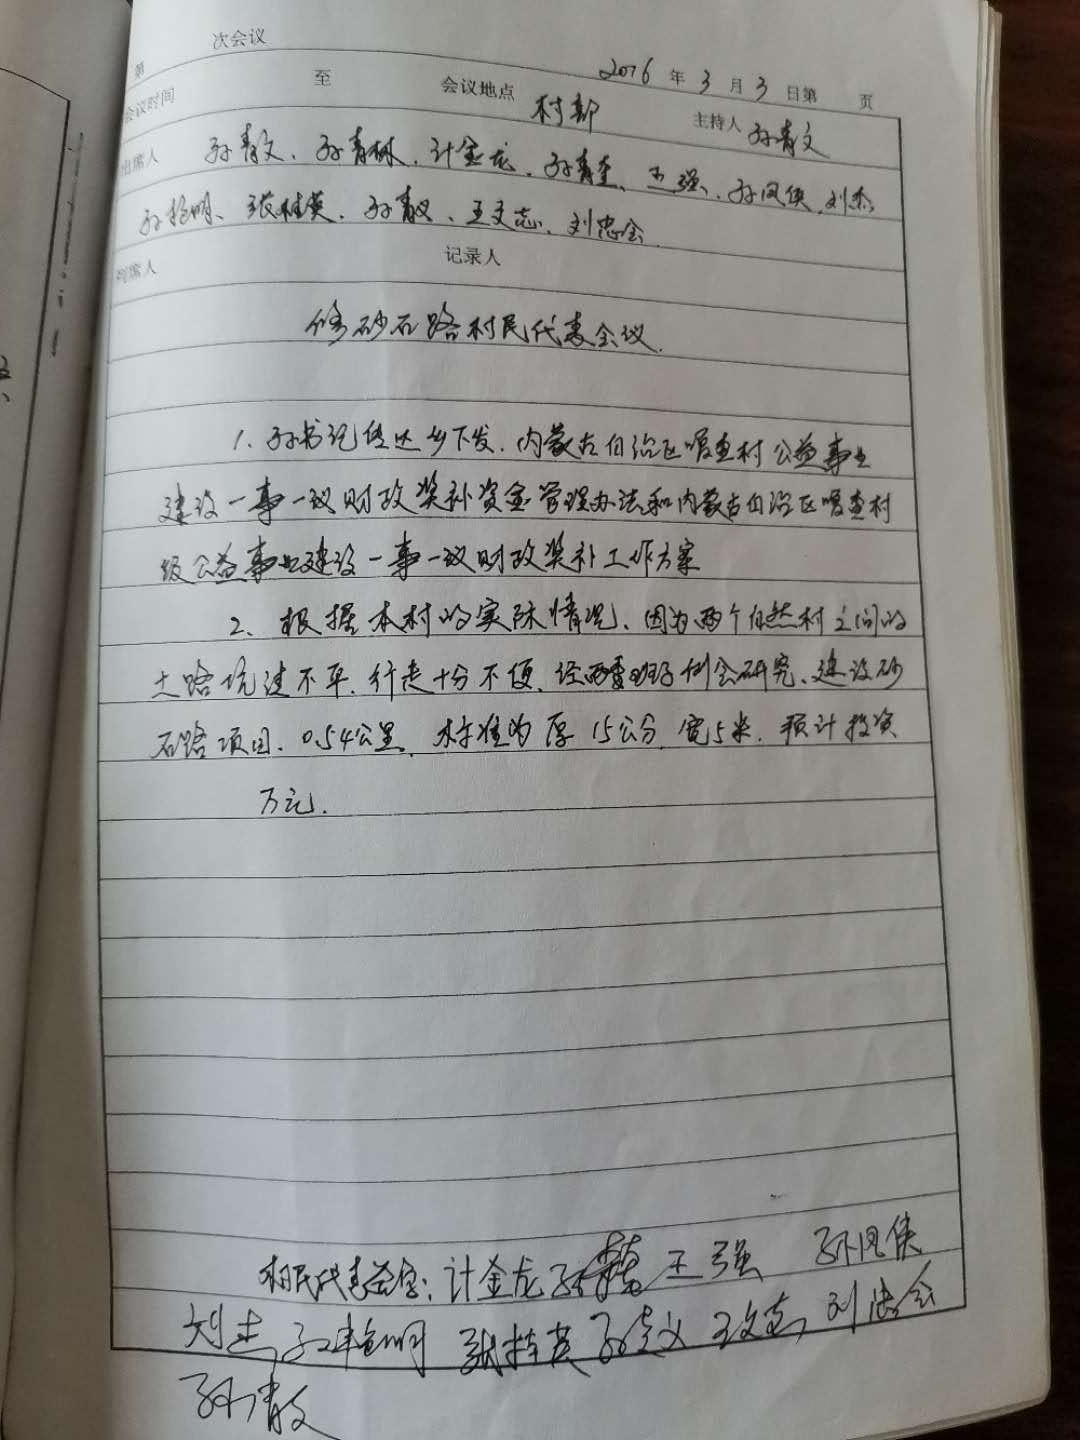 第 次会议
2016年3月3日第 页
会议时间 至 会议地点 村部 主持人 孙青文
出席人 孙青文、孙青林、计金龙、孙青奎、王强、孙凤侠、刘杰
孙艳明、张桂英、孙青义、王文志、刘忠会
列席人 记录人
修砂石路村民代表会议.
1. 孙书记传达乡下发.内蒙古自治区嘎查村公益事业
建设一事一议财政奖补资金管理办法和内蒙古自治区嘎查村
级公益事业建设一事一议财政奖补工作方案
2、根据本村的实际情况、因为两个自然村之间的
土路坑洼不平.行走十分不便.经两委班子例会研究、建设砂
石路项目、0.54公里.标准为厚15公分.宽5米.预计投资
万元.
村民代表签字:计金龙 王强 孙凤侠
刘杰 孙艳明 张桂英 孙青义 王文志 刘忠会
孙青文